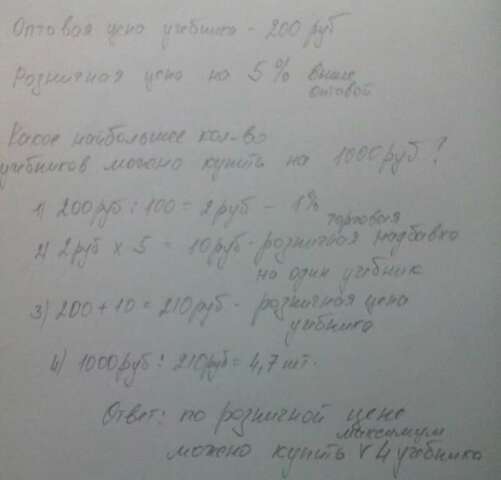 Оптовая цена учебника - 200 руб
Розничная цена на 5% выше
оптовой
Какое наибольшее кол-во
учебников можно купить на 1000 руб?
1) 200 руб : 100 = 2 руб - 1%
торговая
2) 2 руб x 5 = 10 руб - розничная надбавка
на один учебник
3) 200 + 10 = 210 руб - розничная цена
учебника
4) 1000 руб : 210 руб = 4,7 шт.
Ответ: по розничной цене
максимум
можно купить v 4 учебника